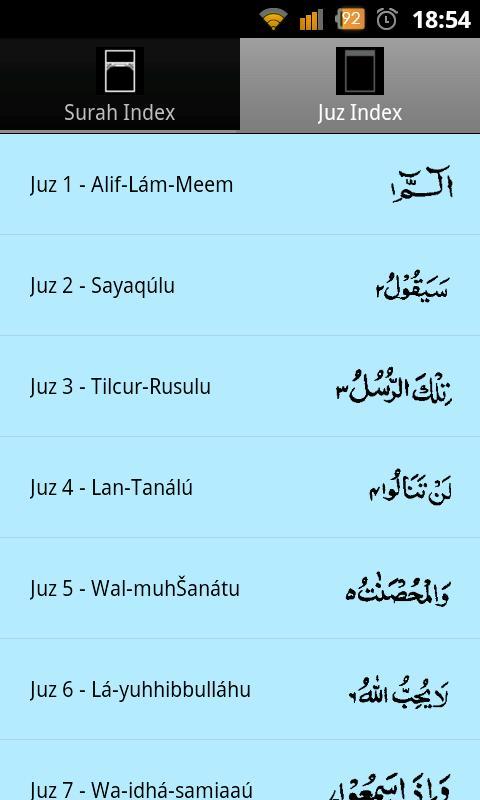 92 18:54
Surah Index Juz Index
Juz 1 - Alif-Lám-Meem الٓـمّٓ ١
Juz 2 - Sayaqúlu سَيَقُوْلُ ٢
Juz 3 - Tilcur-Rusulu تِلْكَ الرُّسُلُ ٣
Juz 4 - Lan-Tanálú لَنْ تَنَالُوا ٤
Juz 5 - Wal-muhŠanátu وَالْمُحْصَنٰتُ ٥
Juz 6 - Lá-yuhhibbulláhu لَا يُحِبُّ اللّٰهُ ٦
Juz 7 - Wa-idhá-samiaaú وَاِذَا سَمِعُوْا ٧